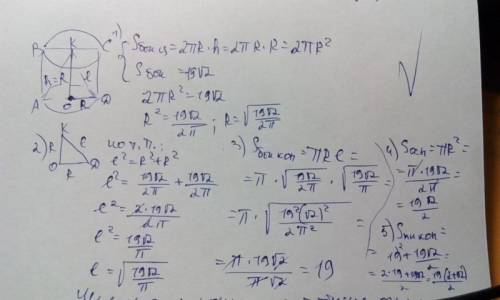 1)
B K C
h=R
l
A O R D
{ Sбок ц = 2πR · h = 2πR · R = 2πR²
Sбок = 19√2
2πR² = 19√2
R² = 19√2/2π ; R = √(19√2/2π)
2) K
R l
O R D
по т. П.:
l² = R² + R²
l² = 19√2/2π + 19√2/2π
l² = 2·19√2/2π
l² = 19√2/π
l = √(19√2/π)
3) Sбок кон = πRl =
= π · √(19√2/2π) · √(19√2/π) =
= π · √(19²(√2)²/2π²) =
= π · 19√2/π√2 = 19
4) Sосн = πR² =
= π · 19√2/2π =
= 19√2/2
5) Sп кон =
= 19 + 19√2/2 =
= 2·19+19√2/2 = 19(2+√2)/2